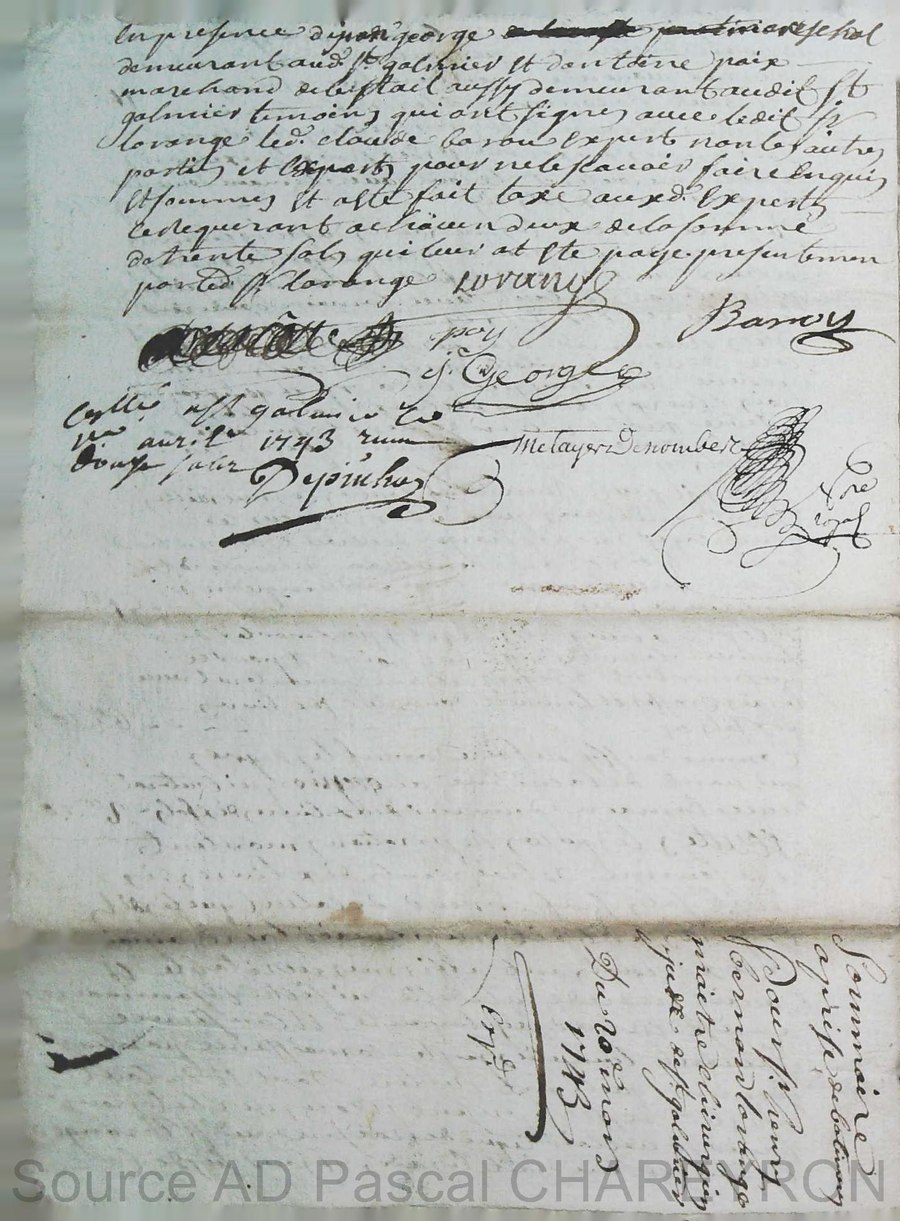 En presence de jean george mareschal
demeurant aud. st galmier et dantoine paix
marchand de bestail aussy demeurant audit st
galmier temoins qui ont signes avec ledit sr
lorange led. claude barou expert non les autres
parties et experts pour ne le scavoir faire enquis
et sommes et a ete fait taxe auxd. experts
ce requerant a chacun deux de la somme
de trente sols qui leur at ete paye presentemen
par led. sr lorange lorange
Barroy
poy
j. George
st galmier le
avril 1743 reçu
douze sols
Depinhas
Metayer Denombert
Nre
royal
Sommaire
aprise de batimens
Pour sr. henry
bernard lorange
maitre chirurgien
jurde de st galmier
Du 20e mars
1743
Expd.
Source AD Pascal CHAREYRON